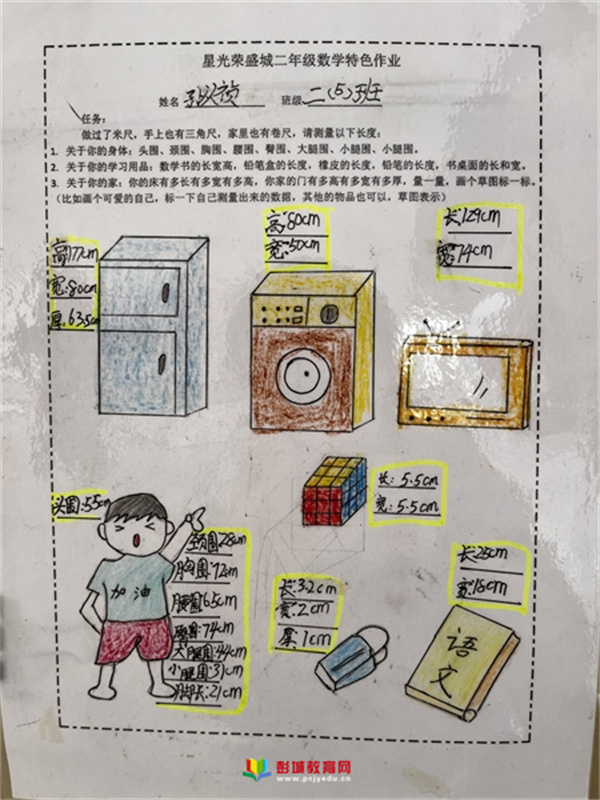 星光荣盛城二年级数学特色作业
姓名 班级 二(5)班
任务:
做过了米尺，手上也有三角尺，家里也有卷尺，请测量以下长度：
1. 关于你的身体：头围、颈围、胸围、腰围、臀围、大腿围、小腿围、小腿围。
2. 关于你的学习用品：数学书的长宽高，铅笔盒的长度，橡皮的长度，铅笔的长度，书桌面的长和宽。
3. 关于你的家：你的床有多长有多宽有多高，你家的门有多高有多宽有多厚，量一量，画个草图标一标。
（比如画个可爱的自己，标一下自己测量出来的数据，其他的物品也可以，草图表示）
高:177cm
宽:80cm
厚:63.5cm
高:80cm
宽:50cm
长:129cm
宽:74cm
长:5.5cm
宽:5.5cm
头围:55cm
颈围:28cm
胸围:72cm
腰围:65cm
臀围:74cm
大腿围:44cm
小腿围:31cm
脚长:21cm
加油
长:3.2cm
宽:2cm
厚:1cm
长:25cm
宽:18cm
语文
彭城教育网
www.pcjyedu.cn